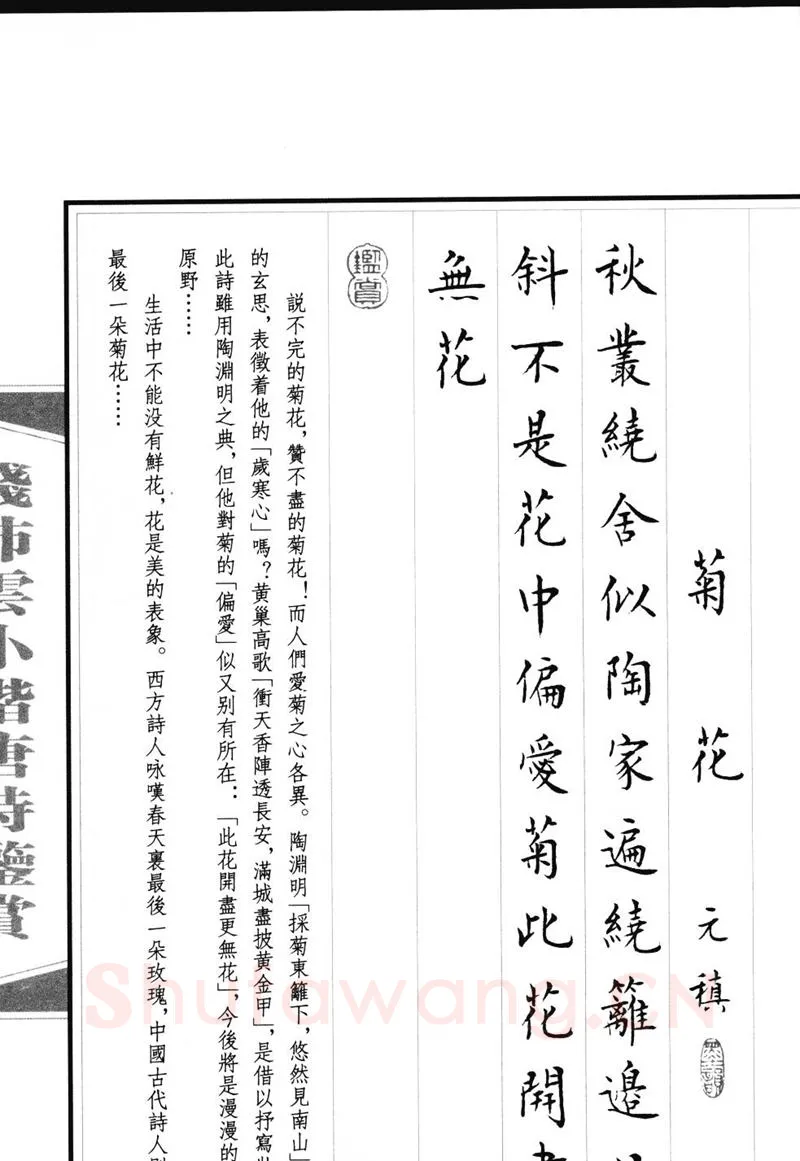 菊花 元稹
秋叢繞舍似陶家遍繞籬邊
斜不是花中偏愛菊此花開
無花
鑑賞
說不完的菊花，贊不盡的菊花！而人們愛菊之心各異。陶淵明「採菊東籬下，悠然見南山」
的玄思，表徵着他的「歲寒心」嗎？黄巢高歌「衝天香陣透長安，滿城盡披黄金甲」，是借以抒寫
此詩雖用陶淵明之典，但他對菊的「偏愛」似又别有所在：「此花開盡更無花」，今後將是漫漫的
原野……
生活中不能没有鮮花，花是美的表象。西方詩人咏嘆春天裏最後一朵玫瑰，中國古代詩人
最後一朵菊花……
雲小楷唐詩鑒賞
Shufawang.CN